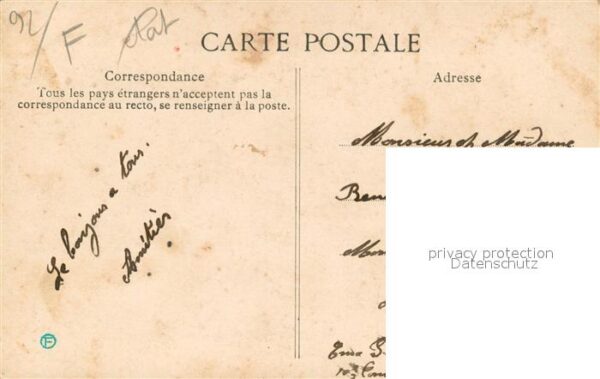 92/
F
CARTE POSTALE
Correspondance
Tous les pays étrangers n'acceptent pas la
correspondance au recto, se renseigner à la poste.
Le bonjour a tous.
Amitiés
F
Adresse
Monsieur et Madame
privacy protection
Datenschutz